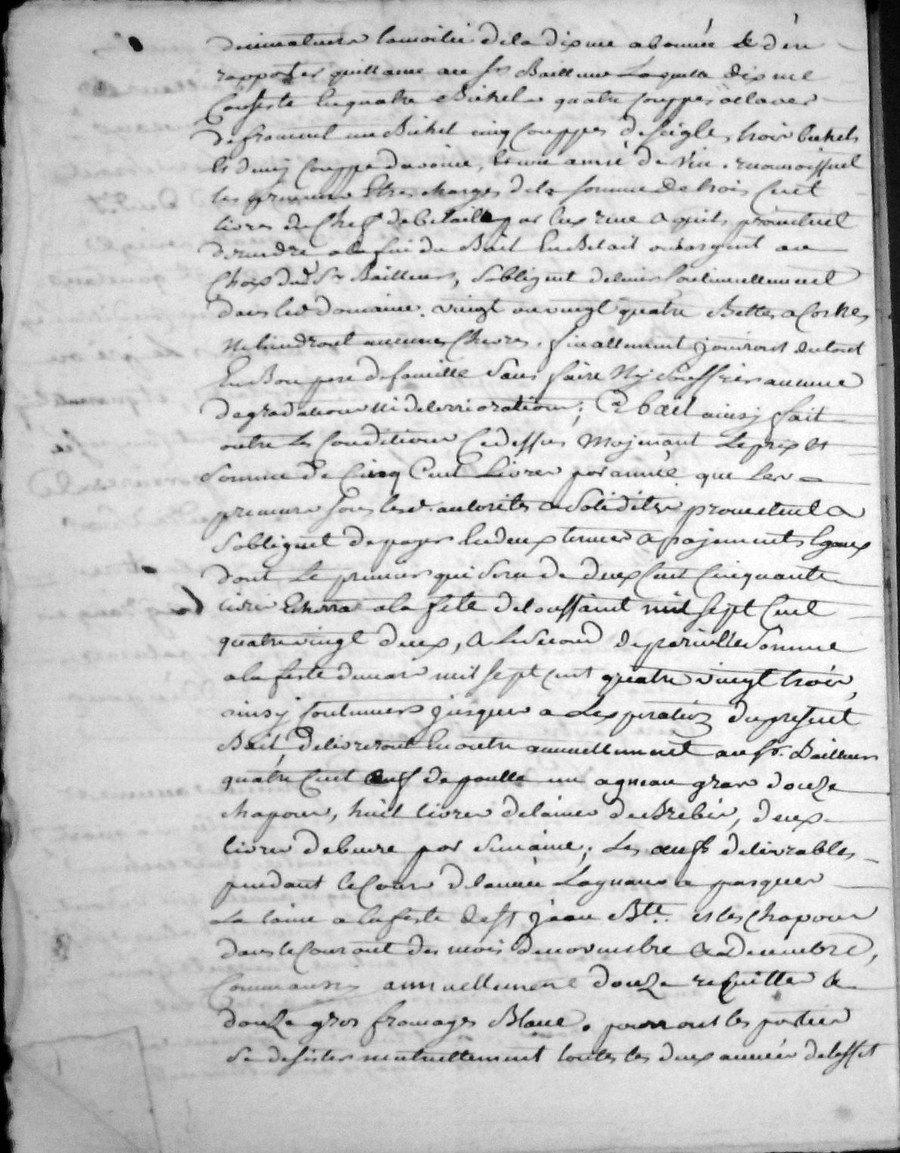 la moitié de la dixme abonnée & d'en
rapporter quittance au sr Bailleur Laquelle dixme
Consiste En quatre Bichets quatre Couppes
de froment un Bichet cinq Couppes de seigle, trois bichets
Et demy Couppe davoine, Et une
les preneurs Etres charges de la somme De trois Cent
livres de Chef de betail par Eux reue a quils promettent
de rendre a la fin du Bail En Betail ou argent au
Choix dud Sr Bailleur, sobligent de tenir Continuellement
dans led domaine vingt ou vingt quatre Bettes a Cornes
Ne tiendront aucunes Chevres. finallement jouiront du tout
En Bon pere de famille Sans faire Ny souffrir aucune
degradations Ni deterriorations; Ce bail ainsy fait
outre les Conditions Cy dessus Mojenant Le prix et
Somme de Cinq Cent Livres par année que les
preneurs sous lesd. autorités & solidités promettent &
Sobligent de payer En deux termes & pajements Egaux
dont Le premier qui sera de deux Cent Cinquante
livres Echerra a la fete de toussaint mil sept Cent
quatre vingt deux, & Le second de pareille Somme
a la feste de mars mil sept cent quatre vingt trois
ainsy Continuer jusques a Lexpiration du present
Bail, delivreront En outre annuellement au sr. Bailleur
quatre Cent œufs de poulle un agneau gras douze
chapons, huit livres de laine de Brebis, deux
livres de beure par Semaine; Les œufs delivrables
pendant le Cour de lannée Lagneau a pasques
La laine a la feste de st jean Btte. et les chapons
dans le Courant des mois de novembre & decembre,
annuellement douze &
douze gros fromages Blanc. pourront les parties
Se desister mutuellement toutes les deux années de leffet